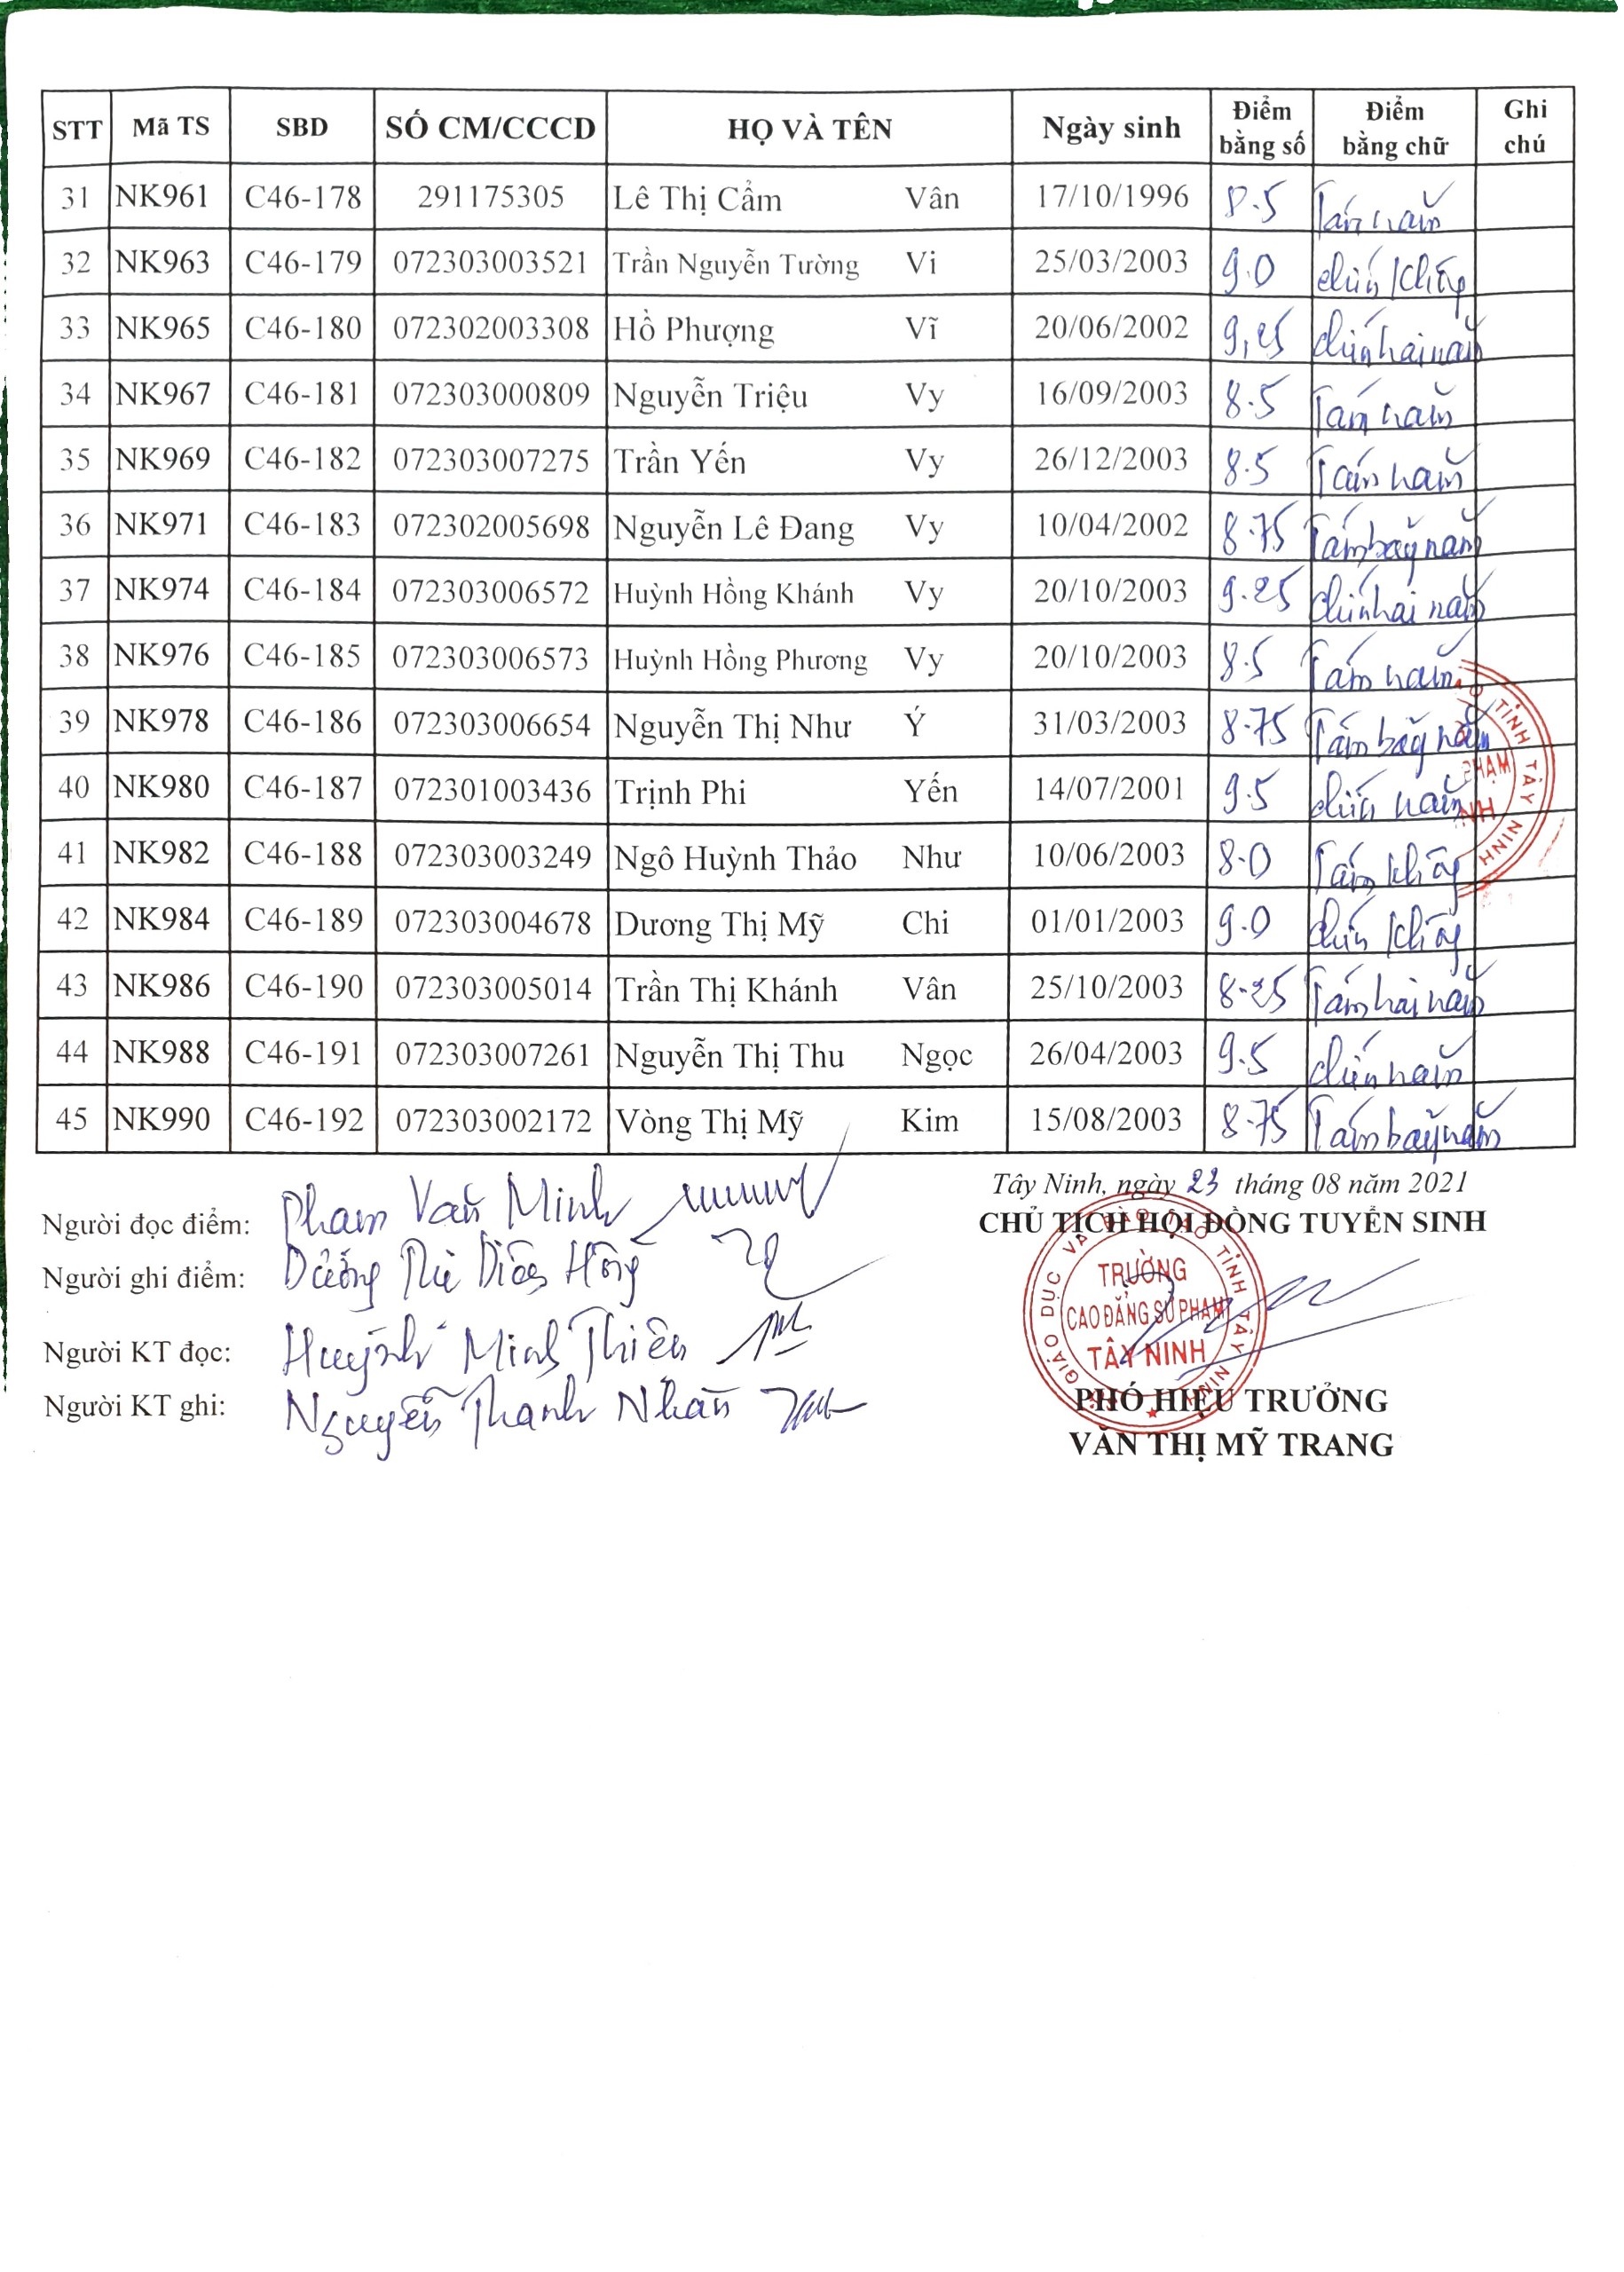 STT Mã TS SBD SỐ CM/CCCD HỌ VÀ TÊN Ngày sinh Điểm bằng số Điểm bằng chữ Ghi chú
31 NK961 C46-178 291175305 Lê Thị Cẩm Vân 17/10/1996 8.5 Tám năm
32 NK963 C46-179 072303003521 Trần Nguyễn Tường Vi 25/03/2003 9.0 chín không
33 NK965 C46-180 072302003308 Hồ Phượng Vĩ 20/06/2002 9,25 chín hai năm
34 NK967 C46-181 072303000809 Nguyễn Triệu Vy 16/09/2003 8.5 Tám năm
35 NK969 C46-182 072303007275 Trần Yến Vy 26/12/2003 8.5 Tám năm
36 NK971 C46-183 072302005698 Nguyễn Lê Đang Vy 10/04/2002 8.75 Tám bảy năm
37 NK974 C46-184 072303006572 Huỳnh Hồng Khánh Vy 20/10/2003 9.25 chín hai năm
38 NK976 C46-185 072303006573 Huỳnh Hồng Phương Vy 20/10/2003 8.5 Tám năm
39 NK978 C46-186 072303006654 Nguyễn Thị Như Ý 31/03/2003 8.75 Tám bảy năm
40 NK980 C46-187 072301003436 Trịnh Phi Yến 14/07/2001 9.5 chín năm
41 NK982 C46-188 072303003249 Ngô Huỳnh Thảo Như 10/06/2003 8.0 Tám không
42 NK984 C46-189 072303004678 Dương Thị Mỹ Chi 01/01/2003 9.0 chín không
43 NK986 C46-190 072303005014 Trần Thị Khánh Vân 25/10/2003 8.25 Tám hai năm
44 NK988 C46-191 072303007261 Nguyễn Thị Thu Ngọc 26/04/2003 9.5 chín năm
45 NK990 C46-192 072303002172 Vòng Thị Mỹ Kim 15/08/2003 8.75 Tám bảy năm
Tây Ninh, ngày 23 tháng 08 năm 2021
CHỦ TỊCH HỘI ĐỒNG TUYỂN SINH
Người đọc điểm: Phạm Văn Minh
Người ghi điểm: Hồng
Người KT đọc: Huỳnh Minh Thiên
Người KT ghi: Nguyễn Thanh Nhàn
GIÁO DỤC VÀ ĐÀO TẠO TỈNH TÂY NINH
TRƯỜNG
CAO ĐẲNG SƯ PHẠM
TÂY NINH
PHÓ HIỆU TRƯỞNG
VĂN THỊ MỸ TRANG